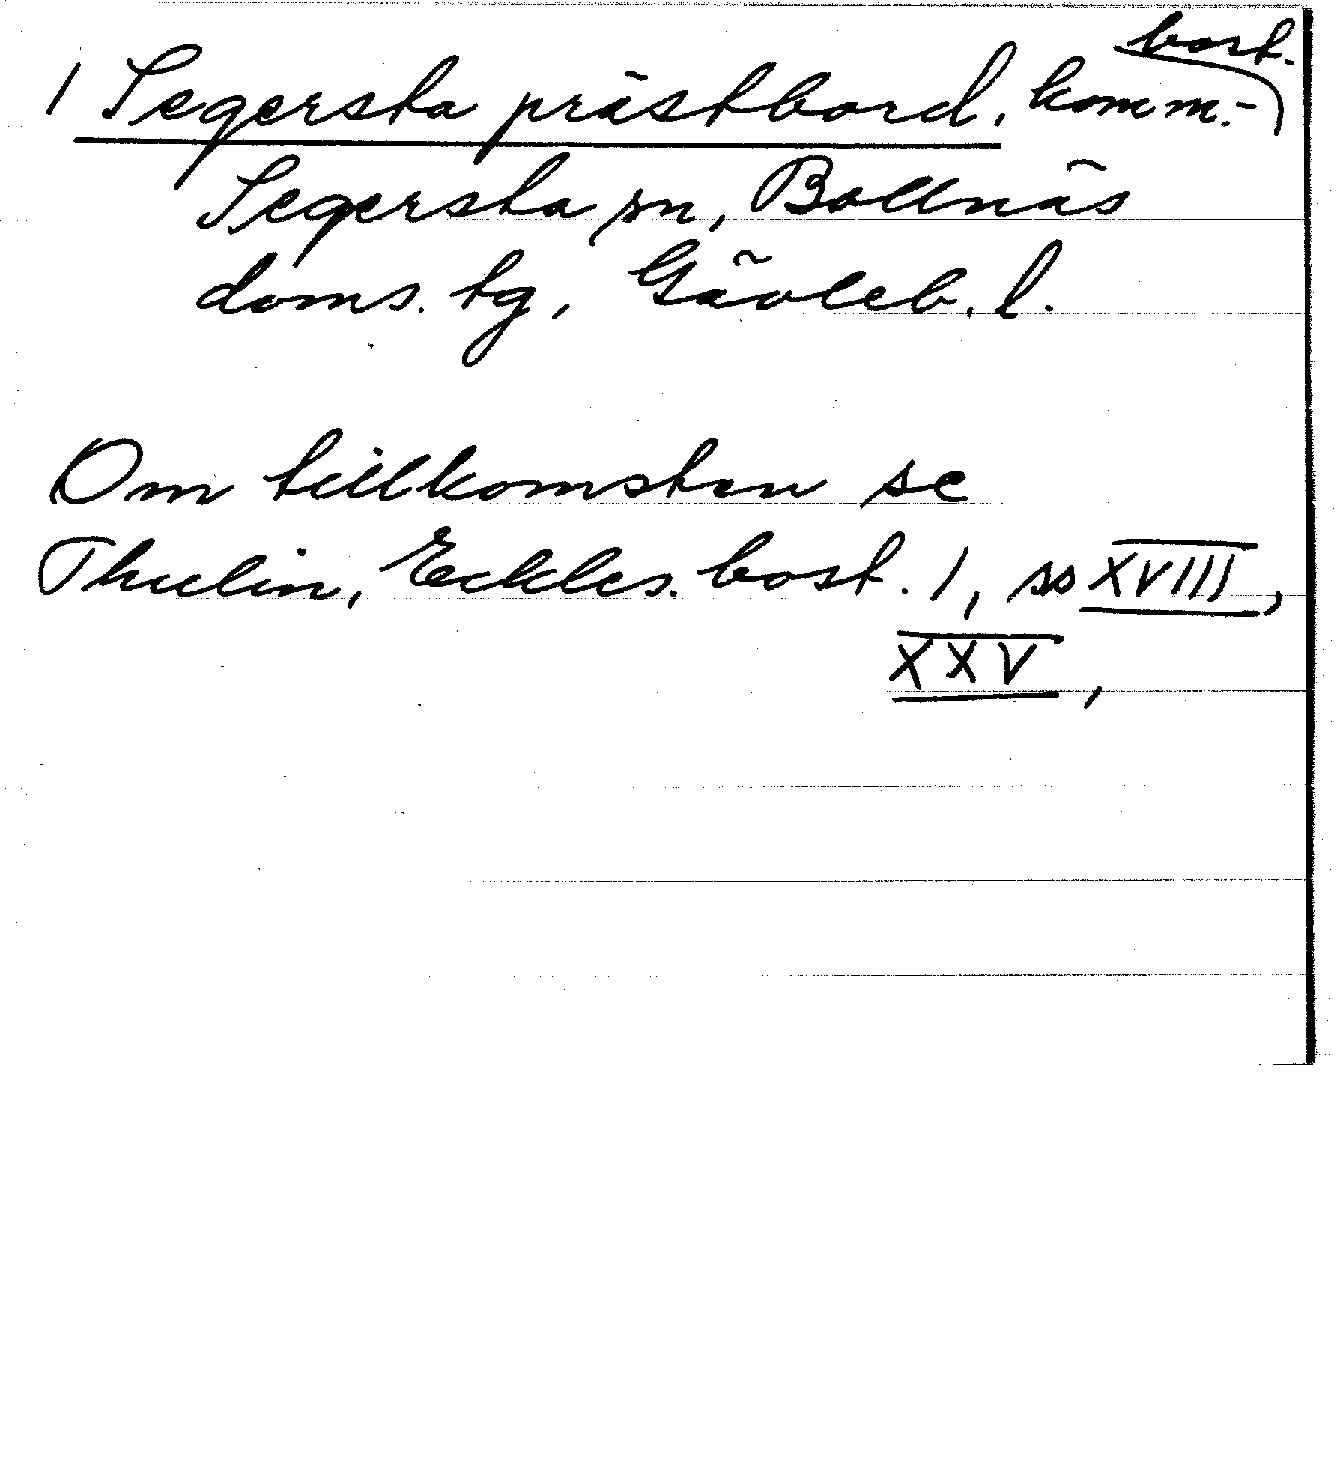 1 Segersta prästbord, komm.-bost.
Segersta sn, Bollnäs
doms. tg, Gävleb. l.
Om tillkomsten se
Thulin, Eckles. bost. 1, ss XVIII,
XXV,